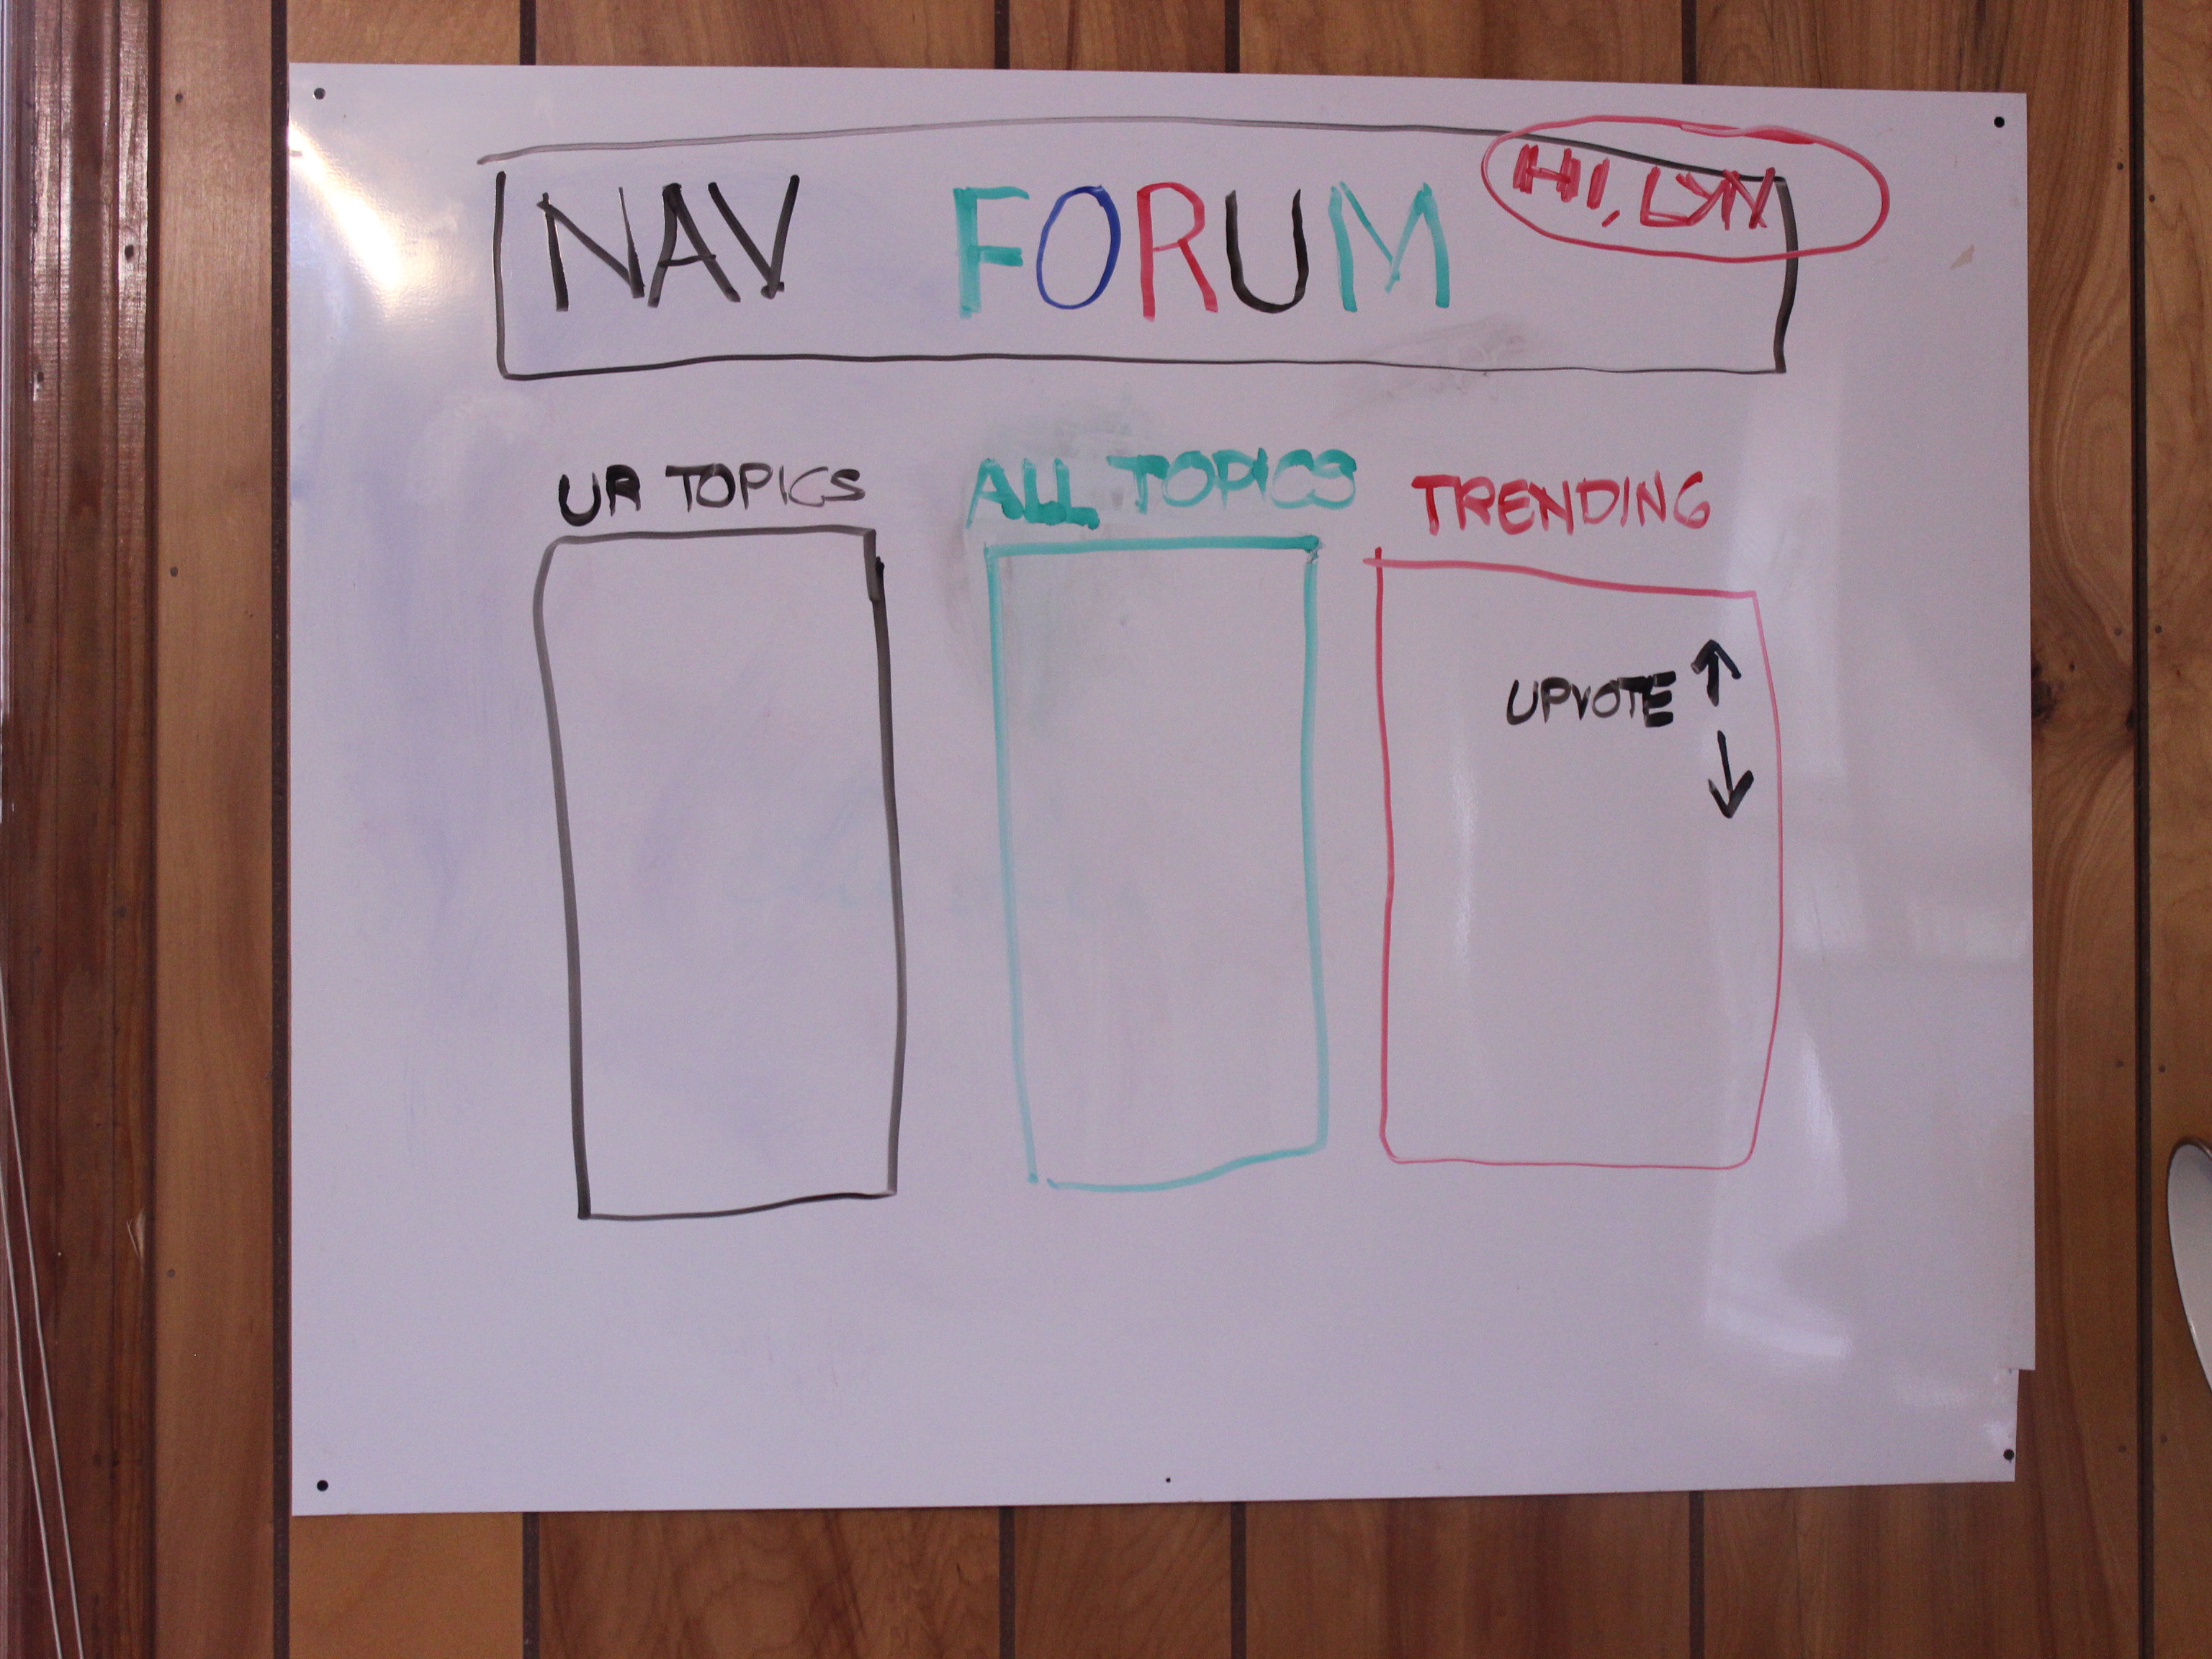 NAV. FORUM HI, LYN
UR TOPICS ALL TOPICS TRENDING
UPVOTE ↑
↓